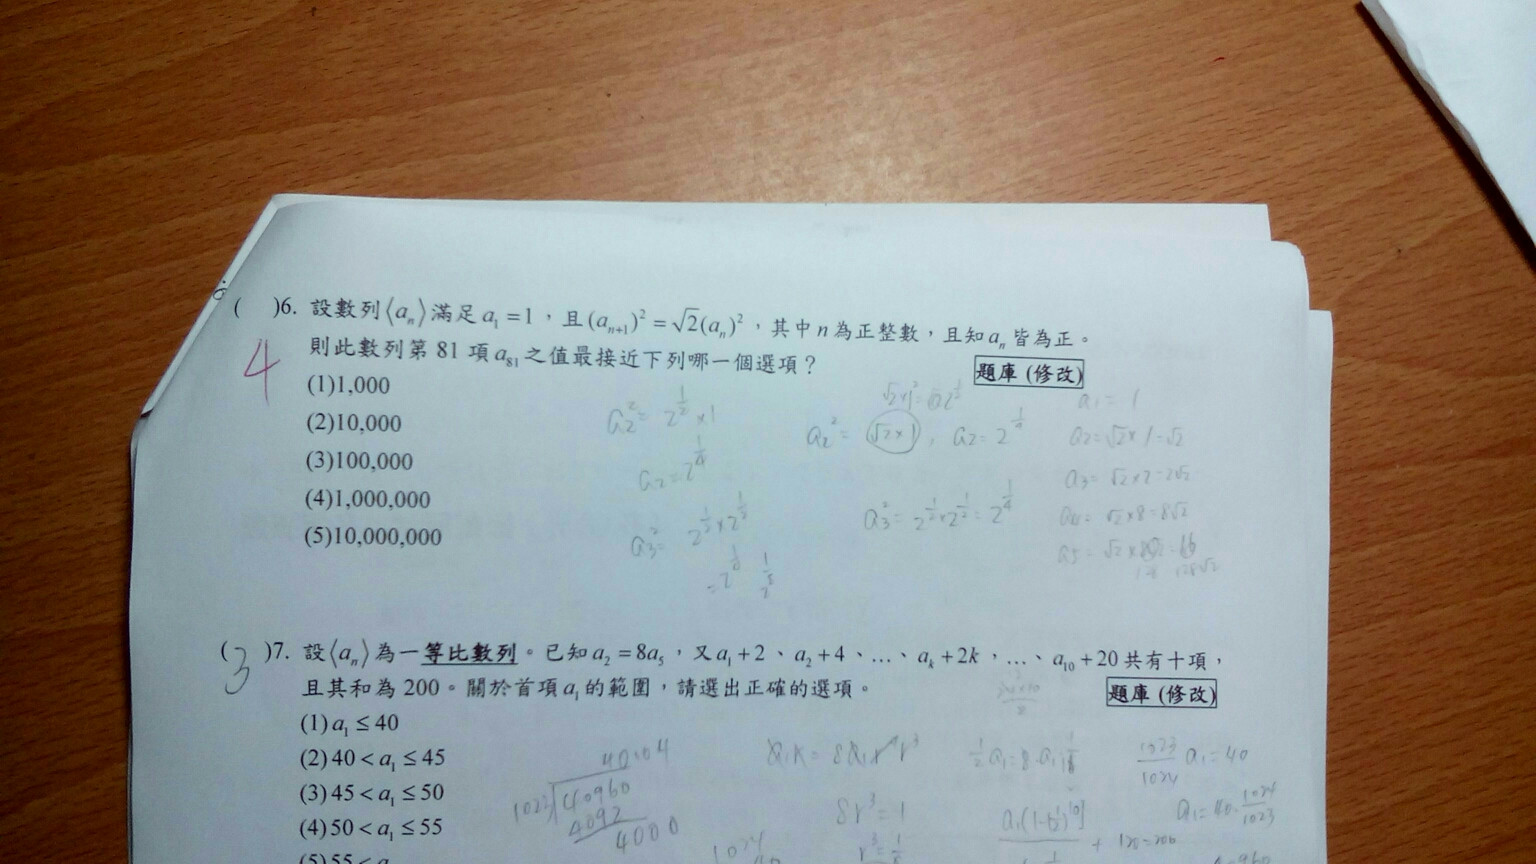 ( )6. 設數列⟨aₙ⟩滿足 a₁ = 1，且 (aₙ₊₁)² = √2(aₙ)²，其中 n 為正整數，且知 aₙ 皆為正。
則此數列第 81 項 a₈₁ 之值最接近下列哪一個選項？
題庫 (修改)
4
(1)1,000
(2)10,000
(3)100,000
(4)1,000,000
(5)10,000,000
a₂² = 2^(1/2) × 1
a₂ = 2^(1/4)
a₃² = 2^(1/2) × 2^(1/2)
a₂² = √2 × 1 , a₂ = 2^(1/4)
a₃² = 2^(1/2) × 2^(1/2) = 2^(1/4)
a₁ = 1
a₂ = √2 × 1 = √2
a₃ = √2 × 2 = 2√2
a₄ = √2 × 8 = 8√2
( 3 )7. 設⟨aₙ⟩為一等比數列。已知 a₂ = 8a₅，又 a₁ + 2、a₂ + 4、…、aₖ + 2k，…、a₁₀ + 20 共有十項，
且其和為 200。關於首項 a₁ 的範圍，請選出正確的選項。
題庫 (修改)
(1) a₁ ≤ 40
(2) 40 < a₁ ≤ 45
(3) 45 < a₁ ≤ 50
(4) 50 < a₁ ≤ 55
(5) 55 < a
1023 40960
4092
4000
8r³ = 1
1023/1024 a₁ = 40
a₁ = 40 · 1024/1023